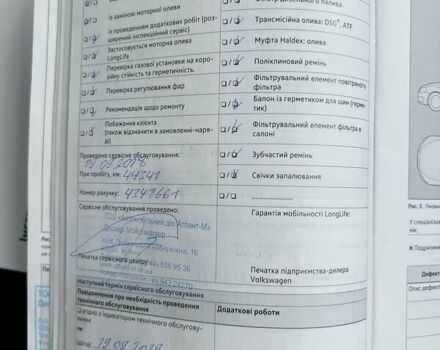 Із заміною моторної оливи
Із проведенням додаткових робіт (роз-
ширений інспекційний сервіс)
Застосовується моторна олива
LongLife
Перевірка газової установки на коро-
зійну стійкість та герметичність.
Перевірка регулювання фар
Рекомендація щодо ремонту
Побажання клієнта
(також відзначити в замовленні-наря-
ді)
Проведено сервісне обслуговування:
19 09 2018
При пробігу, км: 44341
Номер рахунку: 4348661
Сервісне обслуговування проведено:
ТОВ «Автомобільний дім Атлант-М»
Дилер Volkswagen
набережна, 16
Печатка сервісного центру
Наступний термін сервісного обслуговування
Повідомлення про необхідність проведення
технічного обслуговування
згідно з індикатором технічного обслугову-
вання
(дата): 19 09 2019
Трансмісійна олива: DSG®, ATF
Муфта Haldex: олива
Поліклиновий ремінь
Фільтрувальний елемент повітряного
фільтра
Балон із герметиком для шин (герме-
тик)
Фільтрувальний елемент фільтра в
салоні
Зубчастий ремінь
Свічки запалювання
Гарантія мобільності LongLife:
Печатка підприємства-дилера
Volkswagen
Додаткові роботи
Рис. 5
У спеціалізо
Подряпини
Дефект
Опис дефект